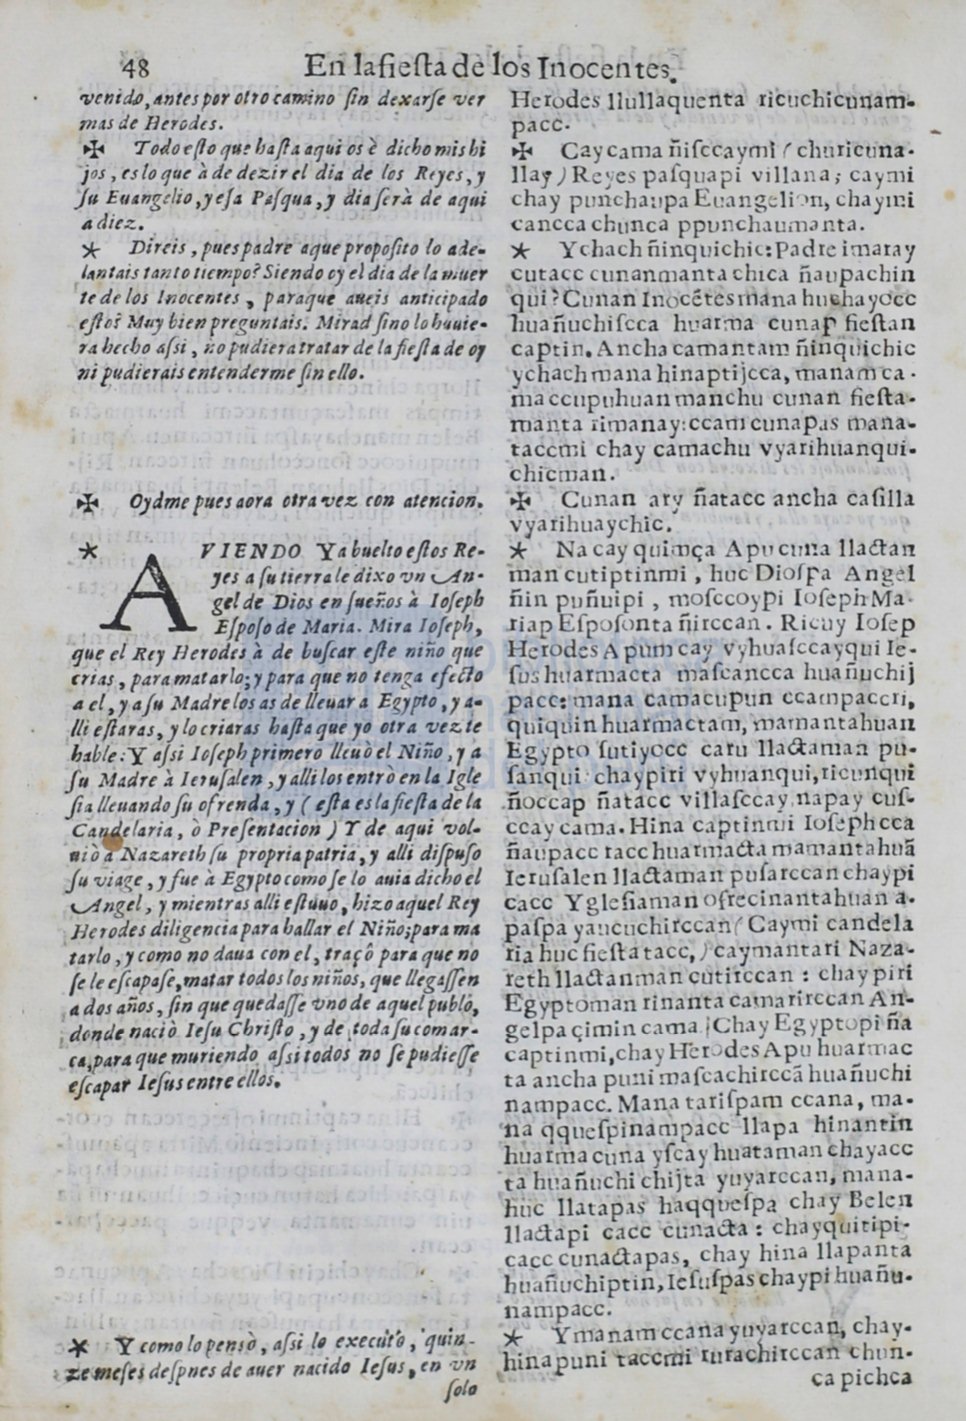 48 En la fiesta de los Inocentes.
venido, antes por otro camino sin dexarse ver
mas de Herodes.
✠ Todo esto que hasta aqui os è dicho mis hi
jos, es lo que à de dezir el dia de los Reyes, y
su Euangelio, y esa Pasqua, y dia serà de aqui
a diez.
* Direis, pues padre a que proposito lo ade-
lantais tanto tiempo? Siendo oy el dia de la muer
te de los Inocentes, para que aueis anticipado
esto? Muy bien preguntais. Mirad sino lo huuie-
ra hecho assi, no pudiera tratar de la fiesta de oy
ni pudierais entenderme sin ello.
✠ Oydme pues aora otra vez con atencion.
* AVIENDO Ya buelto estos Re-
yes a su tierra le dixo vn An-
gel de Dios en sueños à Ioseph
Esposo de Maria. Mira Ioseph,
que el Rey Herodes à de buscar este niño que
crias, para matarlo; y para que no tenga efecto
a el, y a su Madre los as de lleuar a Egypto, y a-
lli estaras, y lo criaras hasta que yo otra vez te
hable: Y assi Ioseph primero lleuò el Niño, y a
su Madre à Ierusalen, y alli los entrò en la Igle
sia lleuando su ofrenda, y ( esta es la fiesta de la
Candelaria, ò Presentacion ) Y de aqui vol-
uiò a Nazareth su propria patria, y alli dispuso
su viage, y fue à Egypto como se lo auia dicho el
Angel, y mientras alli estuuo, hizo aquel Rey
Herodes diligencia para hallar el Niño; para ma
tarlo, y como no daua con el, traçô para que no
se le escapase, matar todos los niños, que llegassen
a dos años, sin que quedasse vno de aquel publo,
donde naciò Iesu Christo, y de toda su comar-
ca, para que muriendo assi todos no se pudiesse
escapar Iesus entre ellos.
* Y como lo pensò, assi lo executo, quin-
ze meses despues de auer nacido Iesus, en vn
solo
Herodes llullaquenta ricuchicunam-
pacc.
✠ Cay cama ñisccaymi ( churicuna-
llay ) Reyes pasquapi villana; caymi
chay punchaupa Euangelion, chaymi
cancca chunca ppunchaumanta.
* Ychach ñinquichic: Padre imaray
cutacc cunanmanta chica ñaupachin
qui? Cunan Inocētes mana huchayocc
huañuchiscca huarma cunap fiestan
captin. Ancha camantam ñinquichic
ychach mana hinaptijcca, manam ca-
maccupuhuan manchu cunan fiesta-
manta rimanay: ccam cunapas mana-
taccmi chay camachu vyarihuanqui-
chicman.
✠ Cunan ary ñatacc ancha casilla
vyarihuaychic.
* Na cay quimça Apu cuna llactan
man cutiptinmi, huc Diospa Angel
ñin puñuipi, mosccoypi Ioseph Ma-
riap Esposonta ñirccan. Ricuy Iosep
Herodes Apum cay vyhuasccayqui Ie-
sus huarmacta mascancca huañuchij
pacc: mana camacupun ccampaccri,
quiquin huarmactam, mamantahuan
Egypto sutiyocc caru llactaman pu-
sanqui chaypiri vyhuanqui, ricunqui
ñoccap ñatacc villasccay napay cus-
ccay cama. Hina captinmi Ioseph cca
ñaupacc racc huarmacta mamantahuā
Ierusalen llactaman pusarccan chaypi
cacc Yglesiaman ofrecinantahuan a-
paspa yaucuchirccan ( Caymi candela
ria huc fiesta tacc, ) caymantari Naza-
reth llactanman cutirccan : chaypiri
Egyptoman rinanta camarirccan An-
gelpa çimin cama. Chay Egyptopi ña
captinmi, chay Herodes Apu huarmac
ta ancha puni mascachirccā huañuchi
nampacc. Mana tarispam ccana, ma-
na qquespinampacc llapa hinantin
huarma cuna yscay huataman chayacc
ta huañuchi chijta yuyarccan, mana-
huc llatapas haqquespa chay Belen
llactapi cacc cunacta : chayquitipi-
cacc cunactapas, chay hina llapanta
huañuchiptin, Iesuspas chaypi huañu-
nampacc.
* Ymanam ccana yuyarccan, chay-
hina puni taccmi rurachirccan chun-
ca pichca